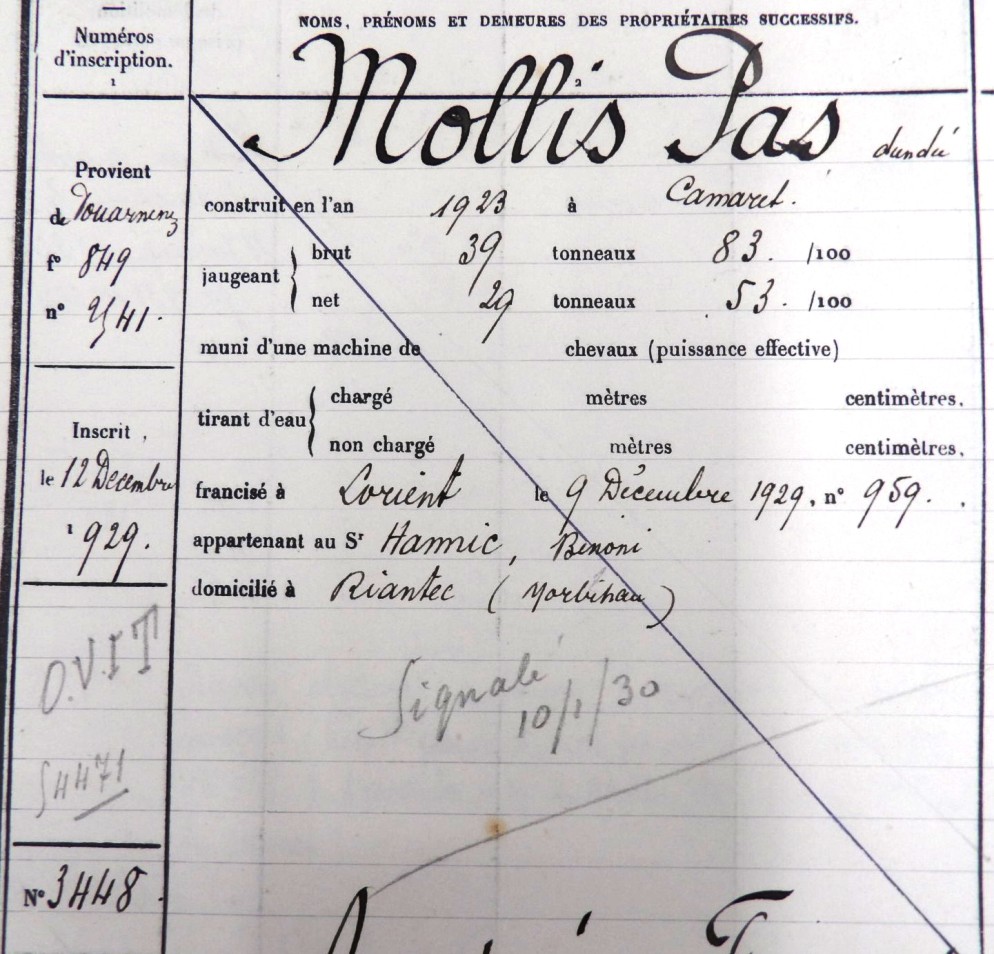 NOMS, PRÉNOMS ET DEMEURES DES PROPRIÉTAIRES SUCCESSIFS.
Numéros
d'inscription.
1
2
Mollis Pas dundée
Provient
de Douarnenez
f° 849
n° 2541.
construit en l'an 1923 à Camaret.
jaugeant
brut 39 tonneaux 83. /100
net 29 tonneaux 53. /100
muni d'une machine de chevaux (puissance effective)
tirant d'eau
chargé mètres centimètres.
non chargé mètres centimètres.
Inscrit
le 12 Decembre
1929.
francisé à Lorient le 9 Décembre 1929, n° 959.
appartenant au Sr Hannic, Bénoni
domicilié à Riantec (Morbihan)
O.V.I.T
S4471
Signalé
10/1/30
N° 3448.